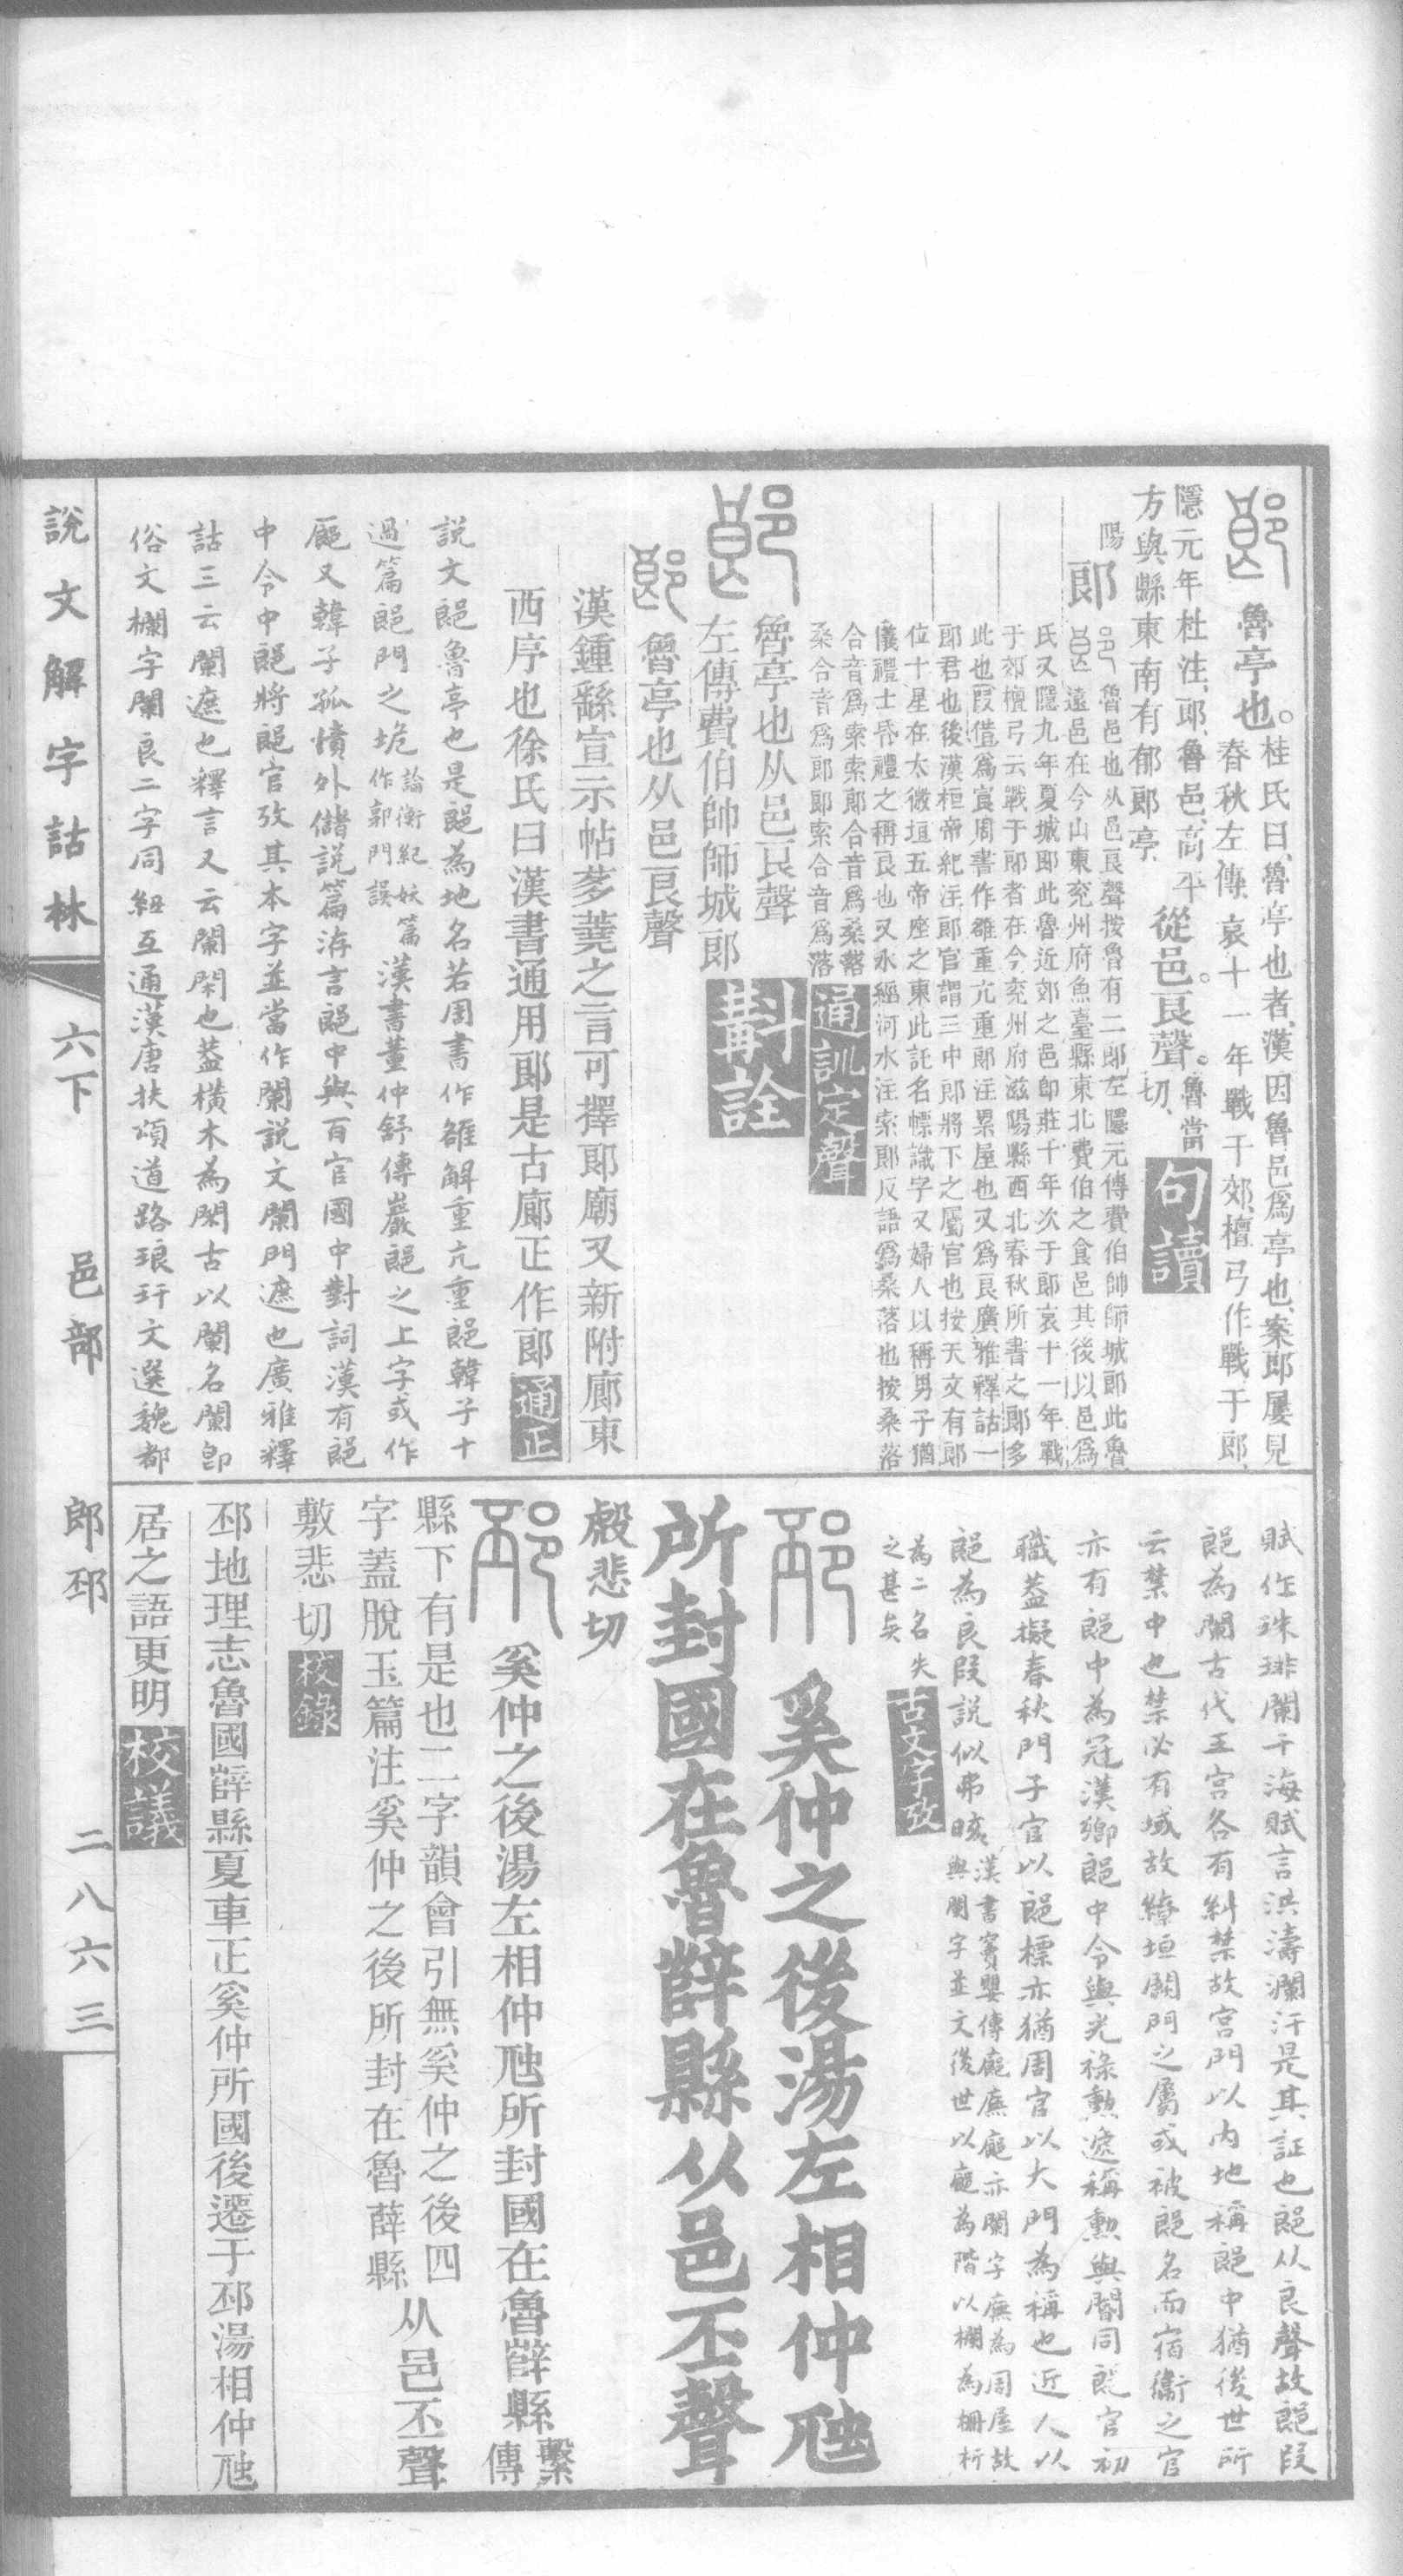 魯亭也。桂氏曰、魯亭也者、漢因魯邑爲亭也、案郎屢見
春秋左傳、哀十一年戰于郊、檀弓作戰于郎、
隱元年杜注、郎、魯邑、高平
方與縣東南有郁郎亭、
從邑。良聲。魯當切、
句讀
陽
郎
魯邑也从邑良聲按魯有二郎左隱元傳費伯帥師城郎此魯
遠邑在今山東兖州府魚臺縣東北費伯之食邑其後以邑爲
氏又隱九年夏城郎此魯近郊之邑卽莊十年次于郎哀十一年戰
于郊檀弓云戰于郎者在今兖州府滋陽縣西北春秋所書之郎多
此也叚借爲㝗周書作雒重亢重郎注累屋也又爲良廣雅釋詁一
郎君也後漢桓帝紀注郎官謂三中郎將下之屬官也按天文有郎
位十星在太微垣五帝座之東此託名幖識字又婦人以稱男子猶
儀禮士昏禮之稱良也又水經河水注索郎反語爲桑落也按桑落
合音爲索索郎合音爲桑落
桑合音爲郎郎索合音爲落
通訓定聲
魯亭也从邑良聲
左傳費伯帥師城郎
斠詮
魯亭也从邑良聲
漢鍾繇宣示帖芗蕘之言可擇郎廟又新附廊東
西序也徐氏曰漢書通用郎是古廊正作郎
通正
説文郎魯亭也是郎為地名若周書作雒解重亢重郎韓子十
過篇郎門之垝論衡紀妖篇作郭門誤漢書董仲舒傳巖郎之上字或作
廊又韓子孤憤外儲説篇洊言郎中與百官國中對詞漢有郎
中令中郎將郎官攷其本字並當作闌説文闌門遮也廣雅釋
詁三云闌遮也釋言又云闌閑也葢橫木為閑古以闌名闌卽
俗文欄字闌良二字同紐互通漢唐扶頌道路琅玕文選魏都
賦作珠琲闌干海賦言洪濤瀾汗是其証也郎从良聲故郎叚
郎為闌古代王宮各有糾禁故宮門以內地稱郎中猶後世所
云禁中也禁必有域故繚垣闢門之屬或被郎名而宿衞之官
亦有郎中為冠漢鄉郎中令與光祿勳遞稱勳與閽同郎官初
職葢擬春秋門子官以郎標亦猶周官以大門為稱也近人以
郎為良叚説似弗晐漢書竇嬰傳廊廡廊亦闌字廡為周屋故
與闌字並文後世以廊為階以欄為柵析
為二名失
之甚矣
古文字攷
奚仲之後湯左相仲虺
所封國在魯薛縣从邑丕聲
敷悲切
奚仲之後湯左相仲虺所封國在魯薛縣繫傳
縣下有是也二字韻會引無奚仲之後四
字蓋脫玉篇注奚仲之後所封在魯薛縣
从邑丕聲
敷悲切
校錄
邳地理志魯國薛縣夏車正奚仲所國後遷于邳湯相仲虺
居之語更明
校議
說文解字詁林
六下
邑部
郎邳
二八六三